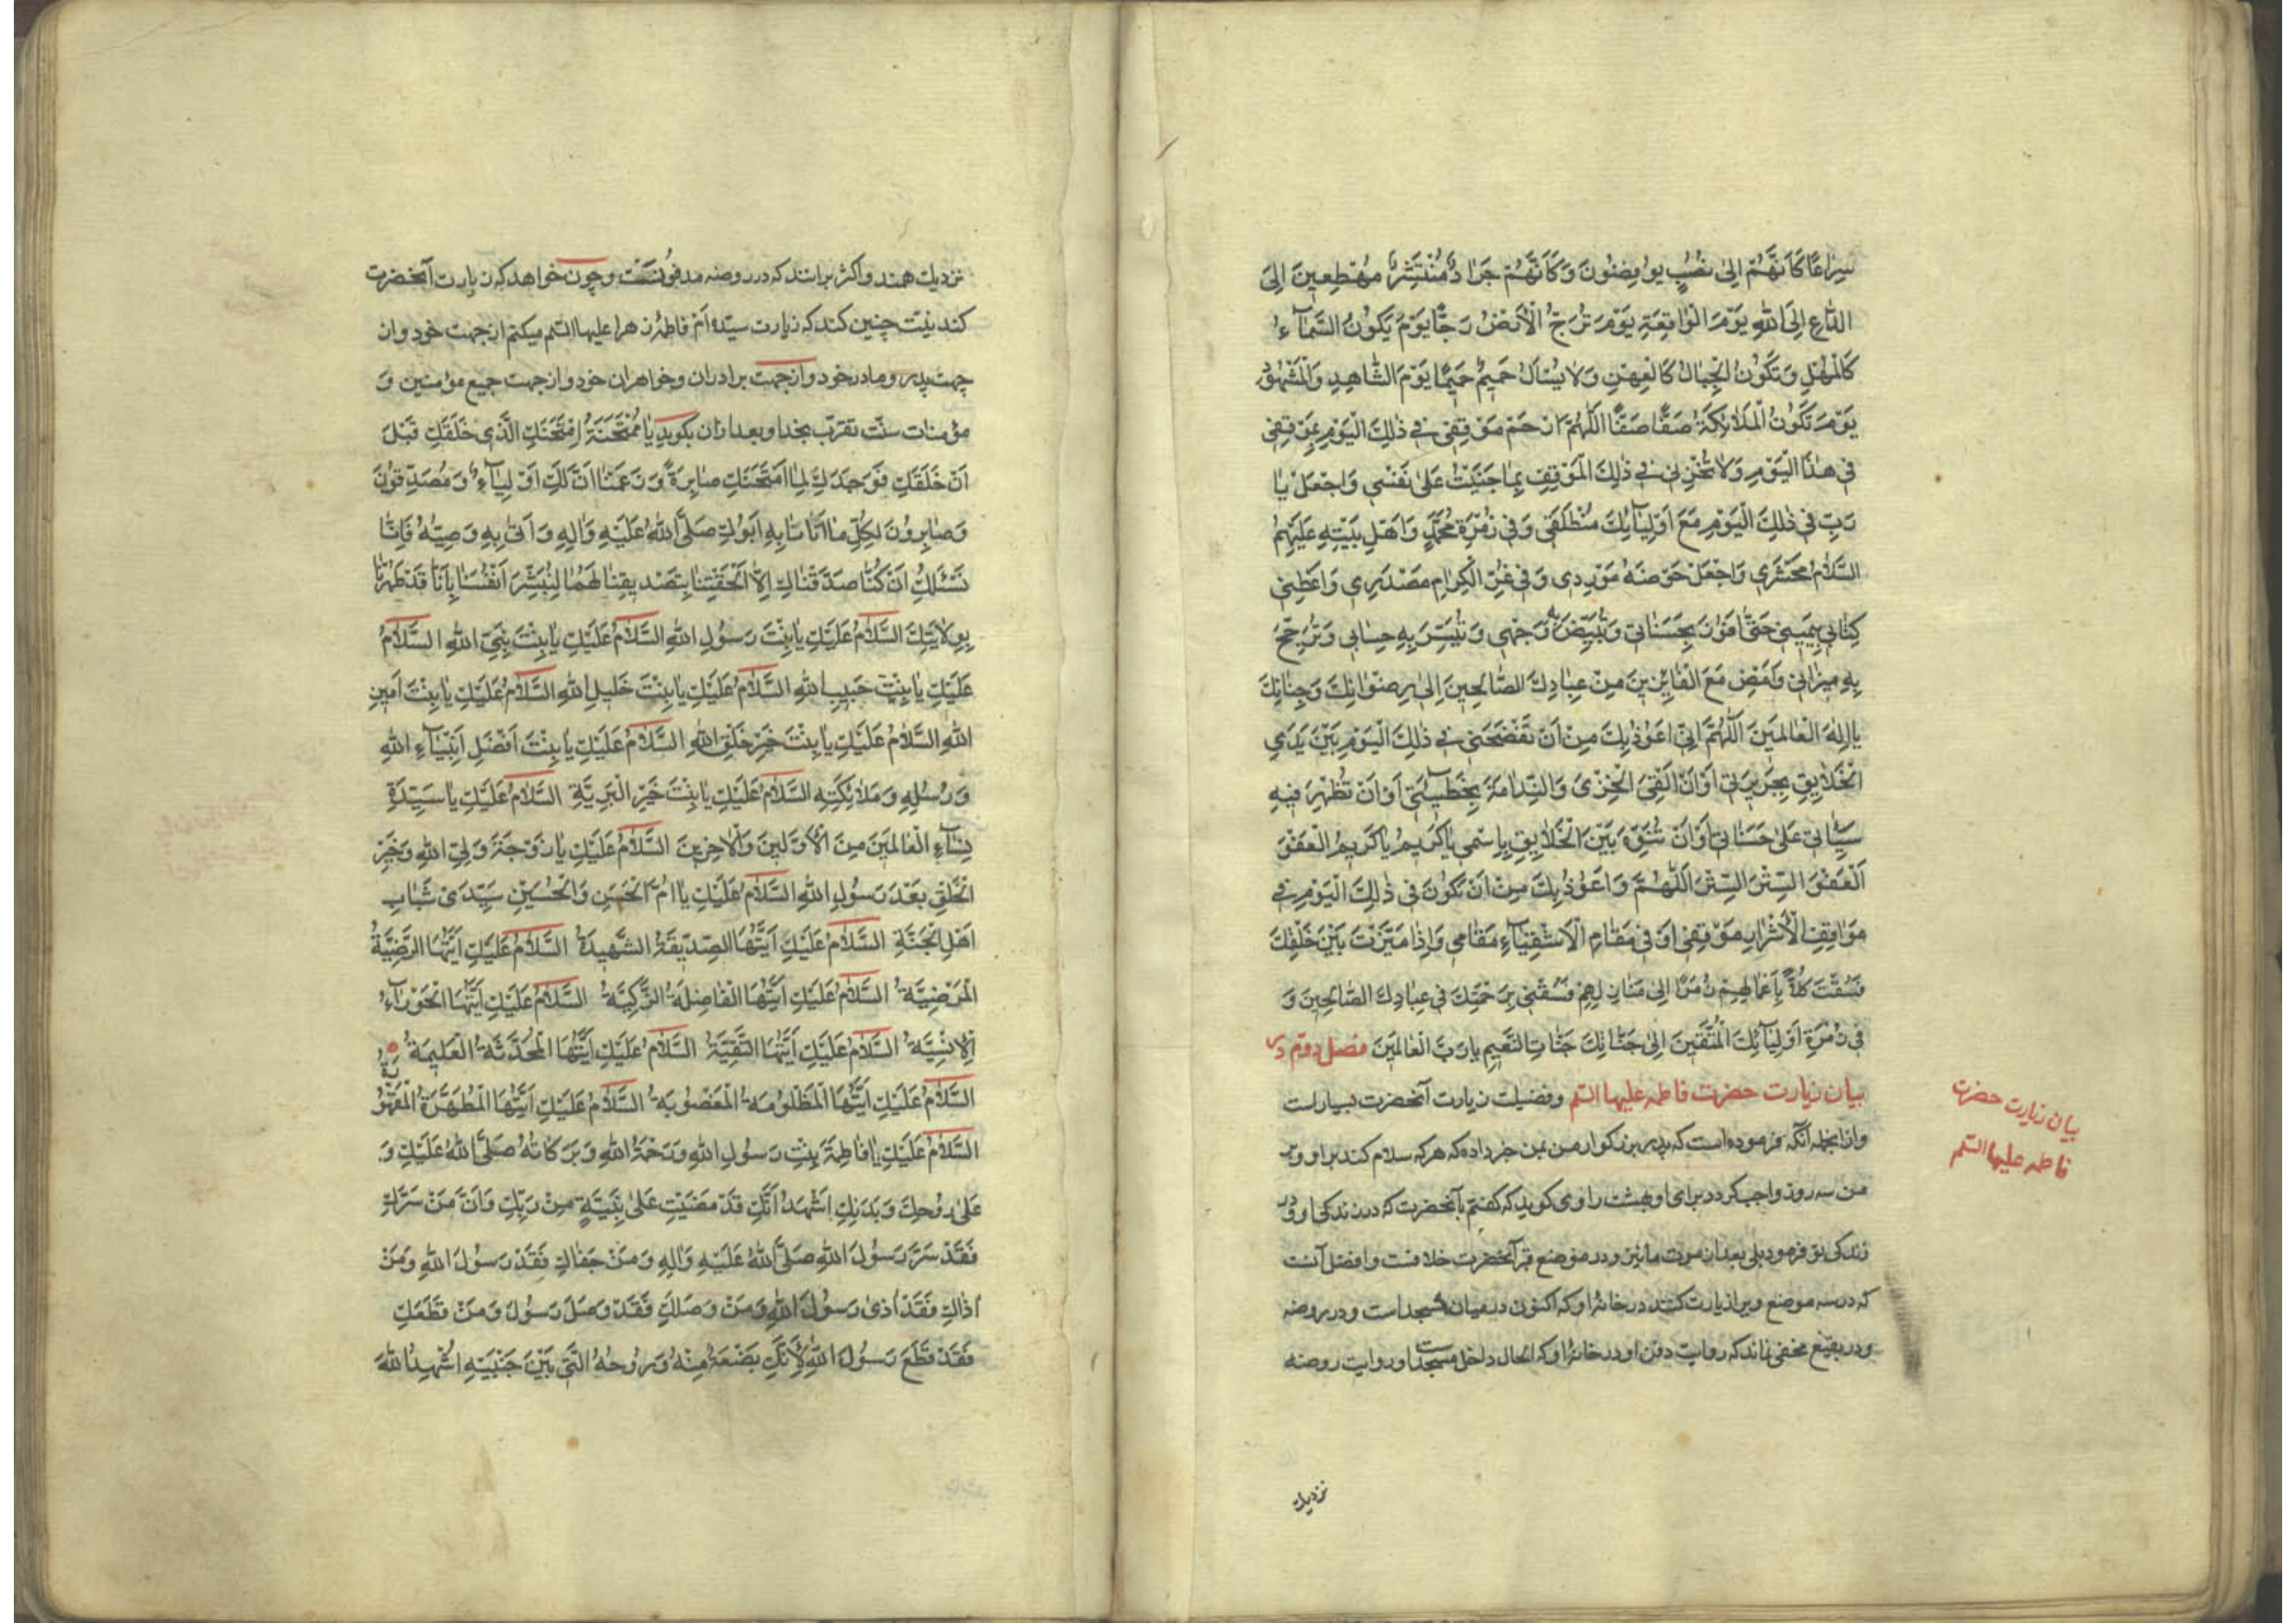 سِرَاعًا كَاَنَّهُمْ اِلىٰ نُصُبٍ يُوفِضُونَ وَكَاَنَّهُمْ جَرَادٌ مُنْتَشِرٌ مُهْطِعِينَ اِلَى
الدَّاعِ اِلَى اللّٰهِ يَوْمَ الْوَاقِعَةِ يَوْمَ تُرَجُّ الْاَرْضُ رَجًّا يَوْمَ يَكُونُ السَّمَآءُ
كَالْمُهْلِ وَتَكُونُ الْجِبَالُ كَالْعِهْنِ وَلَا يُسْاَلُ حَمِيمٌ حَمِيمًا يَوْمَ الشَّاهِدِ وَالْمَشْهُودِ
يَوْمَ تَكُونُ الْمَلَائِكَةُ صَفًّا صَفًّا اَللّٰهُمَّ ارْحَمْ مَوْقِفِى فِى ذٰلِكَ الْيَوْمِ بِمَوْقِفِى
فِى هٰذَا الْيَوْمِ وَلَا تُخْزِنِى فِى ذٰلِكَ الْمَوْقِفِ بِمَا جَنَيْتُ عَلىٰ نَفْسِى وَاجْعَلْ يَا
رَبِّ فِى ذٰلِكَ الْيَوْمِ مَعَ اَوْلِيَآئِكَ مُنْطَلَقِى وَفِى زُمْرَةِ مُحَمَّدٍ وَاَهْلِ بَيْتِهِ عَلَيْهِمُ
السَّلَامُ مَحْشَرِى وَاجْعَلْ حَوْضَهُ مَوْرِدِى وَفِى غُرِّ الْكِرَامِ مَصْدَرِى وَاَعْطِنِى
كِتَابِى بِيَمِينِى حَتّٰى اَفُوزَ بِحَسَنَاتِى وَتُبَيِّضَ بِهِ وَجْهِى وَتُيَسِّرَ بِهِ حِسَابِى وَتُرَجِّحَ
بِهِ مِيزَانِى وَاَمْضِى مَعَ الْفَائِزِينَ مِنْ عِبَادِكَ الصَّالِحِينَ اِلىٰ رِضْوَانِكَ وَجِنَانِكَ
يَا اِلٰهَ الْعَالَمِينَ اَللّٰهُمَّ اِنِّى اَعُوذُ بِكَ مِنْ اَنْ تَفْضَحَنِى فِى ذٰلِكَ الْيَوْمِ بَيْنَ يَدَىِ
الْخَلَايِقِ بِجَرِيرَتِى اَوْ اَنْ اَلْقَى الْخِزْىَ وَالنَّدَامَةَ بِخَطِيئَتِى اَوْ اَنْ تُظْهِرَ فِيهِ
سَيِّئَاتِى عَلىٰ حَسَنَاتِى اَوْ اَنْ تُنَوِّهَ بَيْنَ الْخَلَايِقِ بِاسْمِى يَا كَرِيمُ يَا كَرِيمُ الْعَفْوَ
اَلْعَفْوَ السِّتْرَ السِّتْرَ اَللّٰهُمَّ وَاَعُوذُ بِكَ مِنْ اَنْ يَكُونَ فِى ذٰلِكَ الْيَوْمِ فِى
مَوَاقِفِ الْاَشْرَارِ مَوْقِفِى اَوْ فِى مَقَامِ الْاَشْقِيَآءِ مَقَامِى وَاِذَا مَيَّزْتَ بَيْنَ خَلْقِكَ
فَسُقْتَ كُلًّا بِاَعْمَالِهِمْ زُمَرًا اِلىٰ مَنَازِلِهِمْ فَسُقْنِى بِرَحْمَتِكَ فِى عِبَادِكَ الصَّالِحِينَ وَ
فِى زُمْرَةِ اَوْلِيَآئِكَ الْمُتَّقِينَ اِلىٰ جَنَّاتِكَ جَنَّاتِ النَّعِيمِ يَا رَبَّ الْعَالَمِينَ فصل دوّم در
بيان زيارت حضرت فاطمه عليها السلم وفضيلت زيارت آنحضرت بسيار است
وازانجمله آنكه فرموده است كه پدر بزرگوار من بمن خبر داده كه هركه سلام كند براو وبر
من سه روز واجب گردد براى او بهشت راوى كويد كه كفتم بآنحضرت كه در زندگى او ودر
زندگى تو فرمود بلى بعد از موت ما نيز ودر موضع قبر آنحضرت خلافست وافضل آنست
كه در سه موضع ويرا زيارت كنند در خانۀ او كه اكنون در ميان مسجد است ودر روضه
ودر بقيع مخفى نماند كه روايت دفن او در خانۀ او كه الحال داخل مسجد است و روايت روضه
نزديك
بيان زيارت حضرت
فاطمه عليها السلم
نزديك همند واكثر برانند كه در روضه مدفونست وچون خواهد كه زيارت آنحضرت
كند نيّت چنين كند كه زيارت سيّده‌ام فاطمۀ زهرا عليها السلم ميكنم از جهت خود واز
جهت پدر ومادر خود واز جهت برادران وخواهران خود واز جهت جميع مؤمنين و
مؤمنات سنّت تقرّب بخدا وبعد ازان بكويد يَا مُمْتَحَنَةُ اِمْتَحَنَكِ الَّذِى خَلَقَكِ قَبْلَ
اَنْ خَلَقَكِ فَوَجَدَكِ لِمَا امْتَحَنَكِ صَابِرَةً وَزَعَمْنَا اَنَّا لَكِ اَوْلِيَآءُ وَمُصَدِّقُونَ
وَصَابِرُونَ لِكُلِّ مَا اَتَانَا بِهِ اَبُوكِ صَلَّى اللّٰهُ عَلَيْهِ وَاٰلِهِ وَاَتىٰ بِهِ وَصِيُّهُ فَاِنَّا
نَسْئَلُكِ اِنْ كُنَّا صَدَّقْنَاكِ اِلَّا اَلْحَقْتِنَا بِتَصْدِيقِنَا لَهُمَا لِنُبَشِّرَ اَنْفُسَنَا بِاَنَّا قَدْ طَهُرْنَا
بِوِلَايَتِكِ السَّلَامُ عَلَيْكِ يَا بِنْتَ رَسُولِ اللّٰهِ السَّلَامُ عَلَيْكِ يَا بِنْتَ نَبِىِّ اللّٰهِ السَّلَامُ
عَلَيْكِ يَا بِنْتَ حَبِيبِ اللّٰهِ السَّلَامُ عَلَيْكِ يَا بِنْتَ خَلِيلِ اللّٰهِ السَّلَامُ عَلَيْكِ يَا بِنْتَ اَمِينِ
اللّٰهِ السَّلَامُ عَلَيْكِ يَا بِنْتَ خَيْرِ خَلْقِ اللّٰهِ السَّلَامُ عَلَيْكِ يَا بِنْتَ اَفْضَلِ اَنْبِيَآءِ اللّٰهِ
وَرُسُلِهِ وَمَلَائِكَتِهِ السَّلَامُ عَلَيْكِ يَا بِنْتَ خَيْرِ الْبَرِيَّةِ السَّلَامُ عَلَيْكِ يَا سَيِّدَةَ
نِسَآءِ الْعَالَمِينَ مِنَ الْاَوَّلِينَ وَالْاٰخِرِينَ السَّلَامُ عَلَيْكِ يَا زَوْجَةَ وَلِىِّ اللّٰهِ وَخَيْرِ
الْخَلْقِ بَعْدَ رَسُولِ اللّٰهِ السَّلَامُ عَلَيْكِ يَا اُمَّ الْحَسَنِ وَالْحُسَيْنِ سَيِّدَىْ شَبَابِ
اَهْلِ الْجَنَّةِ السَّلَامُ عَلَيْكِ اَيَّتُهَا الصِّدِّيقَةُ الشَّهِيدَةُ السَّلَامُ عَلَيْكِ اَيَّتُهَا الرَّضِيَّةُ
الْمَرْضِيَّةُ السَّلَامُ عَلَيْكِ اَيَّتُهَا الْفَاضِلَةُ الزَّكِيَّةُ السَّلَامُ عَلَيْكِ اَيَّتُهَا الْحَوْرَآءُ
الْاِنْسِيَّةُ السَّلَامُ عَلَيْكِ اَيَّتُهَا التَّقِيَّةُ السَّلَامُ عَلَيْكِ اَيَّتُهَا الْمُحَدَّثَةُ الْعَلِيمَةُ
السَّلَامُ عَلَيْكِ اَيَّتُهَا الْمَظْلُومَةُ الْمَغْصُوبَةُ السَّلَامُ عَلَيْكِ اَيَّتُهَا الْمُطَهَّرَةُ الْمَقْهُورَةُ
السَّلَامُ عَلَيْكِ يَا فَاطِمَةَ بِنْتِ رَسُولِ اللّٰهِ وَرَحْمَةُ اللّٰهِ وَبَرَكَاتُهُ صَلَّى اللّٰهُ عَلَيْكِ وَ
عَلىٰ رُوحِكِ وَبَدَنِكِ اَشْهَدُ اَنَّكِ قَدْ مَضَيْتِ عَلىٰ بَيِّنَةٍ مِنْ رَبِّكِ وَاَنَّ مَنْ سَرَّكِ
فَقَدْ سَرَّ رَسُولَ اللّٰهِ صَلَّى اللّٰهُ عَلَيْهِ وَاٰلِهِ وَمَنْ جَفَاكِ فَقَدْ رَسُولَ اللّٰهِ وَمَنْ
اٰذَاكِ فَقَدْ اٰذىٰ رَسُولَ اللّٰهِ وَمَنْ وَصَلَكِ فَقَدْ وَصَلَ رَسُولَ وَمَنْ قَطَعَكِ
فَقَدْ قَطَعَ رَسُولَ اللّٰهِ لِاَنَّكِ بَضْعَةٌ مِنْهُ وَرُوحُهُ الَّتِى بَيْنَ جَنْبَيْهِ اُشْهِدُ اللّٰهَ